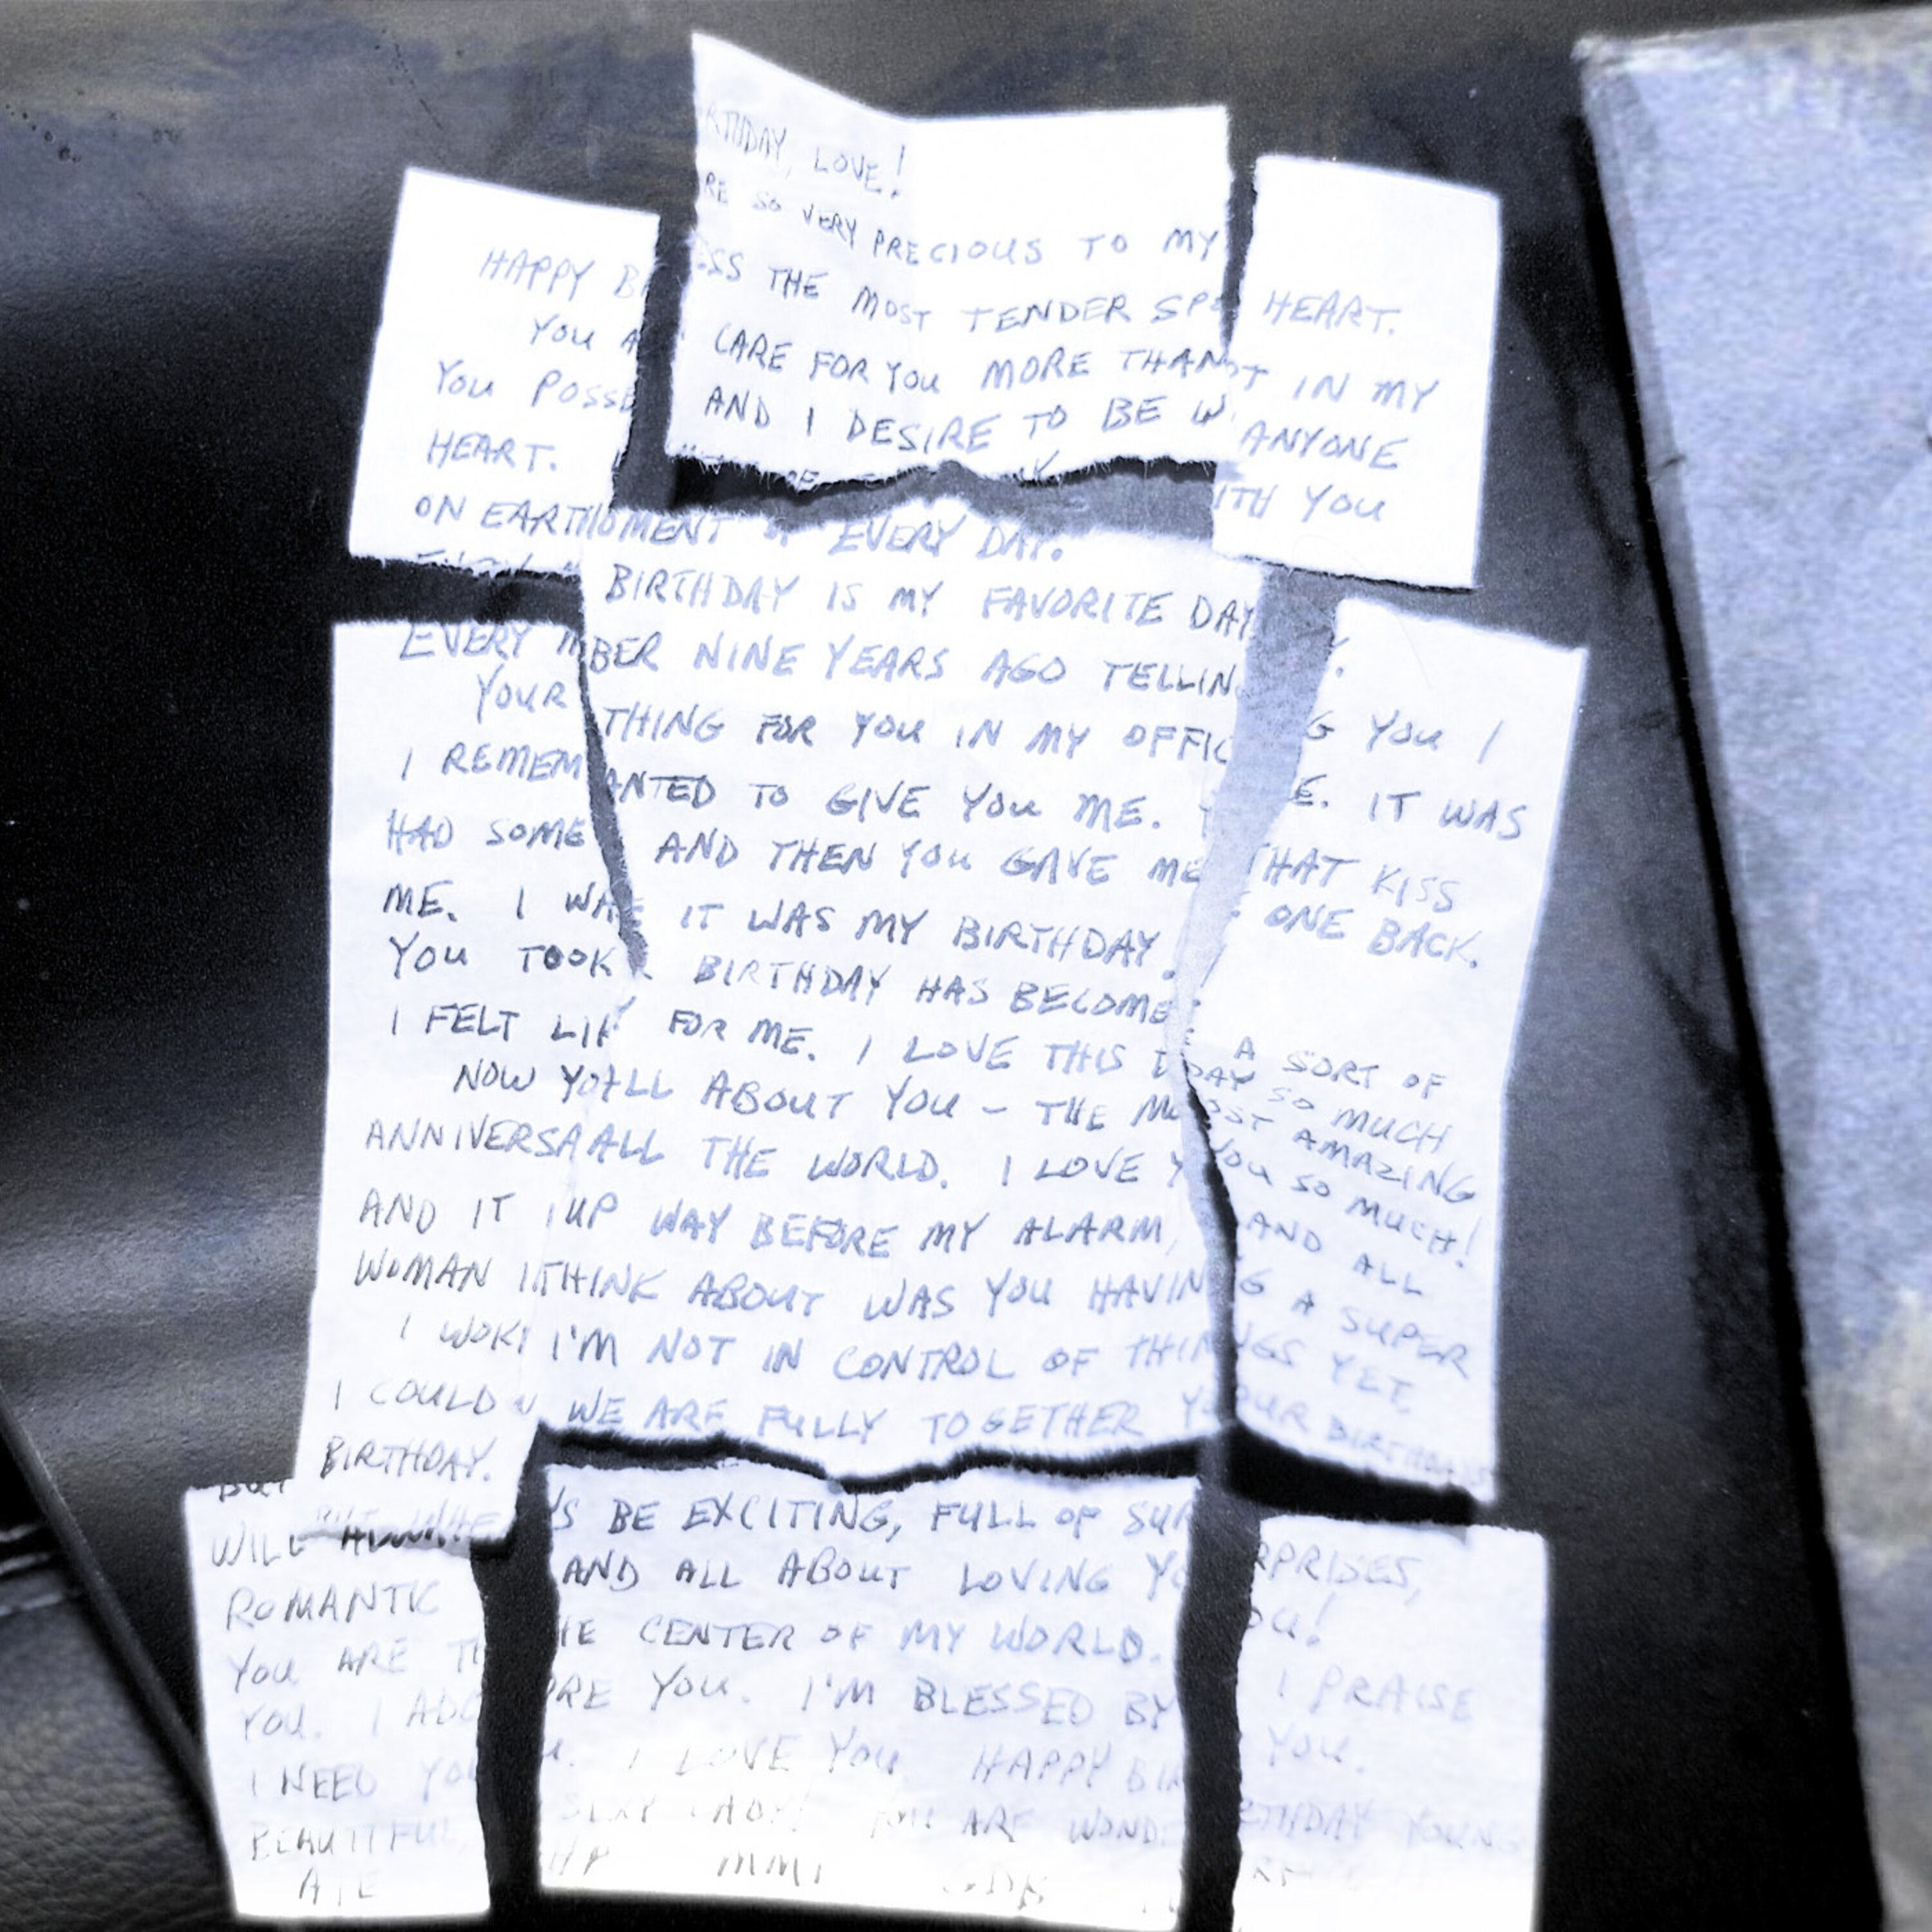 HAPPY BIRTHDAY, LOVE!
YOU ARE SO VERY PRECIOUS TO MY HEART.
YOU POSSESS THE MOST TENDER SPOT IN MY
HEART. I CARE FOR YOU MORE THAN ANYONE
ON EARTH AND I DESIRE TO BE WITH YOU
EVERY MOMENT OF EVERY DAY.
YOUR BIRTHDAY IS MY FAVORITE DAY.
I REMEMBER NINE YEARS AGO TELLING YOU I
HAD SOMETHING FOR YOU IN MY OFFICE. IT WAS
ME. I WANTED TO GIVE YOU ME. THAT KISS
YOU TOOK AND THEN YOU GAVE ME ONE BACK.
I FELT LIKE IT WAS MY BIRTHDAY.
NOW YOUR BIRTHDAY HAS BECOME A SORT OF
ANNIVERSARY FOR ME. I LOVE THIS DAY SO MUCH
AND IT ALL ABOUT YOU - THE MOST AMAZING
WOMAN IN ALL THE WORLD. I LOVE YOU SO MUCH!
I WOKE UP WAY BEFORE MY ALARM, AND ALL
I COULD THINK ABOUT WAS YOU HAVING A SUPER
BIRTHDAY. I'M NOT IN CONTROL OF THINGS YET,
BUT WHEN WE ARE FULLY TOGETHER YOUR BIRTHDAYS
WILL ALWAYS BE EXCITING, FULL OF SURPRISES,
ROMANTIC AND ALL ABOUT LOVING YOU!
YOU ARE THE CENTER OF MY WORLD. I PRAISE
YOU. I ADORE YOU. I'M BLESSED BY YOU.
I NEED YOU. I LOVE YOU. HAPPY BIRTHDAY YOUNG
BEAUTIFUL, SEXY LADY! YOU ARE